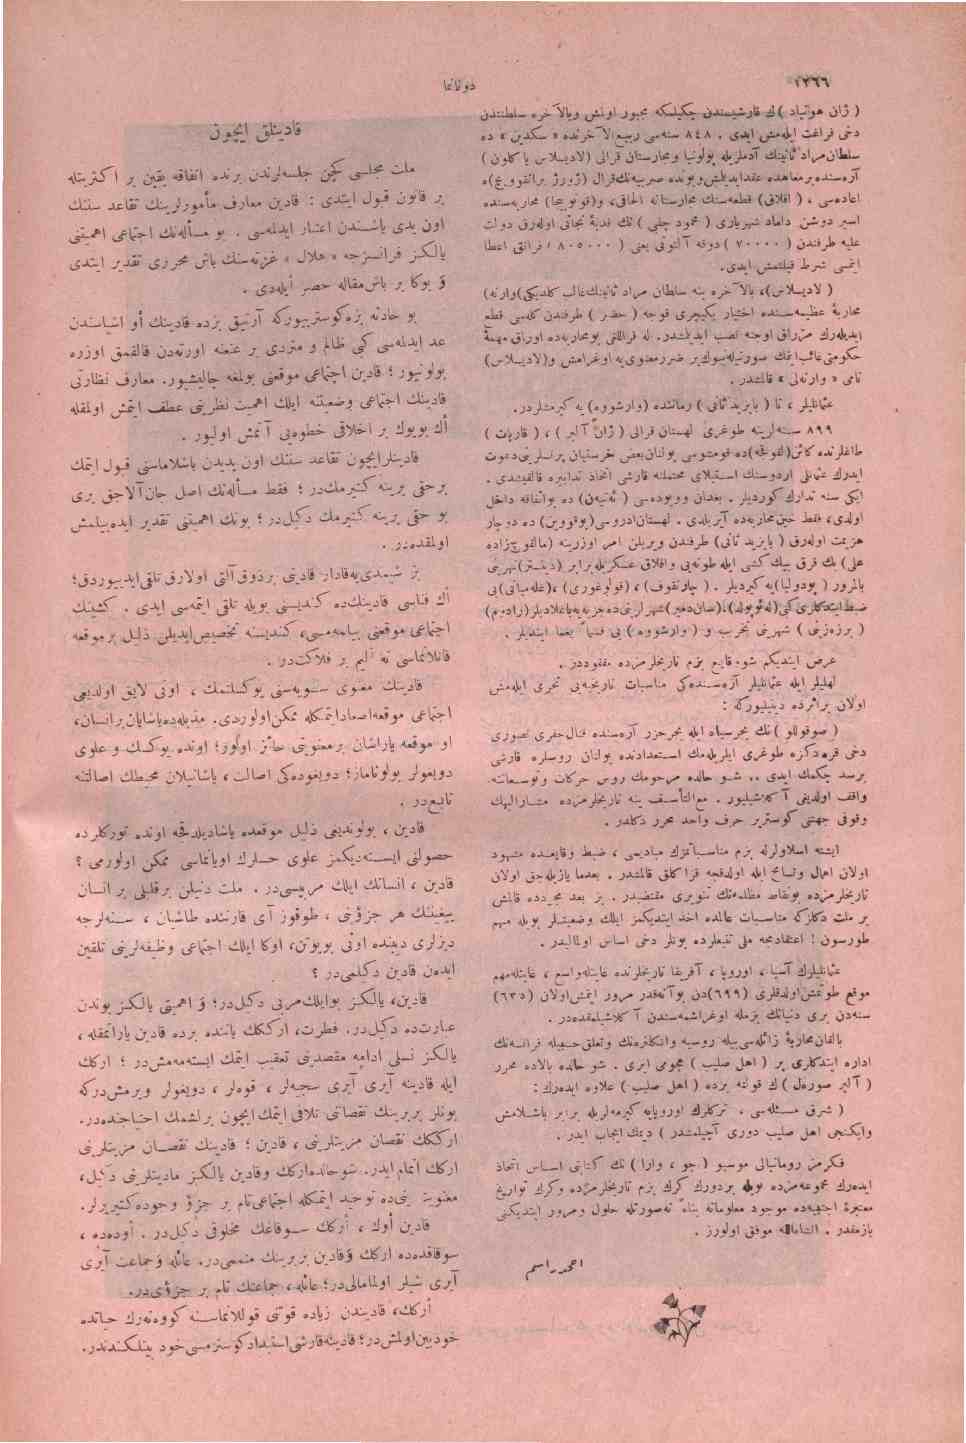 ١٢٦٦
( ژان هونیاد )ك قارشیسندن چكیلمكه مجبور اولمش وبالآخره سلطنتدن
دخی فراغت ایله‌مش ایدی . ٨٤٨ سنه‌سی ربیع‌الآخرنده « سكدین » ده
سلطان مراد ثانینك آدملریله پولونیا ومجارستان قرالی (لادیسلاس یاكلون )
آره‌سنده بر معاهده عقد ایدیلمش وبونده صربیه‌نك قرال (ژورژ برانقوویچ)ه
اعاده‌سی ، (افلاق) قطعه‌سنك مجارستانه الحاقی، و(قونوبیجا) محاربه‌سنده
اسیر دوشن داماد شهریاری ( محمود چلبی ) نك فدیهٔ نجاتی اوله‌رق دولت
علیه طرفندن ( ٧٠٠٠٠ ) دوقه آلتونی یعنی ( ٨٠٥٠٠٠ ) فرانق اعطا
ایتمسی شرط قیلنمش ایدی.
( لادیسلاس)، بالآخره ینه سلطان مراد ثانینك غالب كلدیكی(وارنه)
محاربهٔ عظیمه‌سنده اختیار یكیچری قوجه ( حضر ) طرفندن كله‌سی قطع
ایدیله‌رك مزراق اوجنه نصب ایدیلمشدر. له قراللغی بو محاربه‌ده اوراق مهمهٔ
حكومتی غائب ایتمك صورتیله بیوك بر ضرر معنوی‌یه اوغرامش و(لادیسلاس)
نامی « وارنه‌لی » قالمشدر .
عثمانلیلر ، تا ( بایزید ثانی ) زماننده (وارشووه) یه كیرمشلردر.
٨٩٩ سنه‌لرینه طوغری لهستان قرالی ( ژان آلبر ) ، ( قارپات )
طاغلرنده كائن(لفوتچه)ده قومشوسی بولنان بعض خرستیان پرنسلرینی دعوت
ایدرك عثمانلی اردوسنك استیلای محتملنه قارشی اتخاذ تدابیره قالقیشدی .
ایكی سنه تدارك كوردیلر . بغدان وویوده‌سی ( ئه‌تیه‌ن) ده بو اتفاقه داخل
اولدی، فقط حین محاربه‌ده آیریلدی . لهستان اردوسی(بوقووین) ده دوچار
هزیمت اوله‌رق ( بایزید ثانی) طرفندن ویریلن امر اوزرینه (مالقوچ زاده
علی) بك قرق بیك كشی ایله طونه‌یی وافلاق عسكریله برابر (دنیستر) نهرینی
بالمرور (پودولیا)یه كیردیلر .
( برزه‌زنی ) شهرینی تخریب و ( وارشووه ) یی قسماً یغما ایتدیلر .
عرض ایتدیكم شو وقایع بزم تاریخلرمزده مفقوددر .
لهلیلر ایله عثمانلیلر آره‌سنده‌كی مناسبات تاریخیه‌یی تحری ایله‌مش
اولان بر اثرده دینیلیوركه :
( صوقوللو ) نك بحر سیاه ایله بحر خزر آره‌سنده قنال حفری تصوری
دخی قره دكزه طوغری ایلریله‌مك استعدادنده بولنان روسلره قارشی
برسد چكمك ایدی .. شو حالده مرحومك روس حركات وتوسعاتنه
واقف اولدیغی آكلاشیلیور . مع‌التأسف ینه تاریخلرمزده مشارالیهك
وقوفی جهتنی كوستریر حرف واحد محرر دكلدر .
ایشته اسلاولرله بزم مناسباتمزك مبادیسی ، ضبط وقایعده مشهود
اولان اهمال وتسامح ایله اولدقجه قراكلق قالمشدر . بعدما یازیله‌جق اولان
تاریخلرمزده بو نقاط مظلمه‌نك تنویری مقتضیدر . بز بعد مجددده قالمش
بر ملت دكلزكه مناسبات عالمده اخذ ایتدیكمز ایلك وضعیتلر بویله مبهم
طورسون ! اعتقادمجه ملی تتبعلرده بونلر دخی اساس اولمالیدر .
عثمانلیلرك آسیا ، اوروپا ، آفریقا تاریخلرنده غایتله واسع ، غایتله مهم
موقع طوتمش اولدقلری (٦٩٩)دن بوآنه‌قدر مرور ایتمش اولان (٦٣٥)
سنه‌دن بری دنیانك بزمله اوغراشمه‌سندن آكلاشیلمقده‌در .
بالقان محاربهٔ زائله‌سی بیله روسیه وانكلتره‌نك وتعلق حسیله فرانسه‌نك
اداره ایتدكلری بر ( اهل صلیب ) هجومی ایدی . شو حالده بالاده محرر
( آلبر صوره‌ل ) ك قولنه برده ( اهل صلیب ) علاوه ایده‌رك :
( شرق مسئله‌سی ، تركلرك اوروپایه كیرمه‌لریله برابر باشلامش
وایكنجی اهل صلیب دوری آچیلمشدر ) دیمك ایجاب ایدر .
فكرمز رومانیالی موسیو ( جو ، وارا ) نك كتابنی اساس اتخاذ
ایده‌رك مجموعه‌مزده بویله بر دورك كرك بزم تاریخلرمزده وكرك تواریخ
معتبرهٔ اجنبیه‌ده موجود معلوماته بناءً نه‌صورتله حلول ومرور ایتدیكنی
یازمقدر . انشاءالله موفق اولورز .
احمد راسم
قادینلق ایچون
ملت مجلسی كچن جلسه‌لرندن برنده اتفاقه یقین بر اكثریتله
بر قانون قبول ایتدی : قادین معارف مأمورلرینك تقاعد سننك
اون یدی یاشندن اعتبار ایدلمه‌سی . بو مسأله‌نك اجتماعی اهمیتنی
یالكز فرانسزجه « هلال » غزته‌سنك باش محرری تقدیر ایتدی
و بوكا بر باش مقاله حصر ایله‌دی .
بو حادثه بزه كوستریوركه آرتیق بزده قادینك أو اشیاسندن
عد ایدلمه‌سی كبی ظالم و متردی بر عنعنه اورته‌دن قالقمق اوزره
بولونیور ؛ قادین اجتماعی موقعنی بولمغه چالیشیور. معارف نظارتی
قادینك اجتماعی وضعیتنه ایلك اهمیت نظرینی عطف ایتمش اولمقله
أك بویوك بر اخلاقی خطوه‌یی آتمش اولیور .
قادینلر ایچون تقاعد سننك اون یدیدن باشلاماسنی قبول ایتمك
بر حقی یرینه كتیرمكدر ؛ فقط مسأله‌نك اصل جان آلاجق یری
بو حقی یرینه كتیرمك دكیلدر ؛ بونك اهمیتنی تقدیر ایده‌بیلمش
اولمقده‌در .
بز شیمدی‌یه‌قادار قادینی بر ذوق آلتی اولارق تلقی ایدییوردق؛
أك فناسی قادینك‌ده كندیسنی بویله تلقی ایتمه‌سی ایدی . كشینك
اجتماعی موقعنی بیلمه‌مسی، كندیسنه تخصیص ایدیلن ذلیل بر موقعه
قاتلانماسی نه الیم بر فلاكتدر .
قادینك معنوی سویه‌سنی یوكسلتمك ، اونی لایق اولدیغی
اجتماعی موقعه اصعاد ایتمكله ممكن اولوردی. مذبله‌ده یاشایان بر انسان،
او موقعه یاراشان بر معنویتی حائز اولور؛ اونده یوكسك و علوی
دویغولر بولوناماز؛ دویغوده‌كی اصالت ، یاشانیلان محیطك اصالتنه
تابع‌در .
قادین ، بولوندیغی ذلیل موقعده یاشادیلدقجه اونده توركلرده
حصولنی ایسته‌دیكمز علوی حسلرك اویانماسی ممكن اولورمی ؟
قادین ، انسانك ایلك مربیسی‌در . ملت دنیلن بر قلبلی بر انسان
ییغیننك هر جزؤنی ، طوقوز آی قارننده طاشیان ، سنه‌لرجه
دیزلری دیبنده اونی بویوتن، اوكا ایلك اجتماعی وظیفه‌لرینی تلقین
ایده‌ن قادین دكلمی‌در ؟
قادین، یالكز بو ایلك مربی دكیل‌در؛ و اهمیتی یالكز بوندن
عبارت‌ده دكیل‌در. فطرت، اركك‌ك یاننده برده قادین یاراتمقله ،
یالكز نسلی ادامه مقصدینی تعقیب ایتمك ایسته‌مه‌مش‌در ؛ اركك
ایله قادینه آیری آیری سجیه‌لر ، قوه‌لر ، دویغولر ویرمش‌دركه
بونلر بربرینك نقصاننی تلافی ایتمك ایچون برلشمك احتیاجنده‌در.
ارككك نقصان مزیتلرینی ، قادین ؛ قادینك نقصان مزیتلرینی
اركك اتمام ایدر. شو حالده اركك وقادین یالكز مادیتلرینی دكیل،
معنویت‌ینی‌ده توحید ایتمكله اجتماعی تام بر جزؤ وجوده كتیریرلر.
قادین أوك ، أركك سوقاغك مخلوقی دكیل‌در . أوده‌ده ،
سوقاقده‌ده اركك وقادین بربرینك متممی‌در. عائله و جماعت آیری
آیری شیلر اولمامالی‌در؛ عائله ، جماعتك تام بر جزؤی‌در.
أركك، قادیندن زیاده قوتنی قوللانماسنه كووه‌نه‌رك حیاتده
خودبین اولمش‌در؛ قادینه قارشی استبداد كوسترمسی خود بینلكندندر.